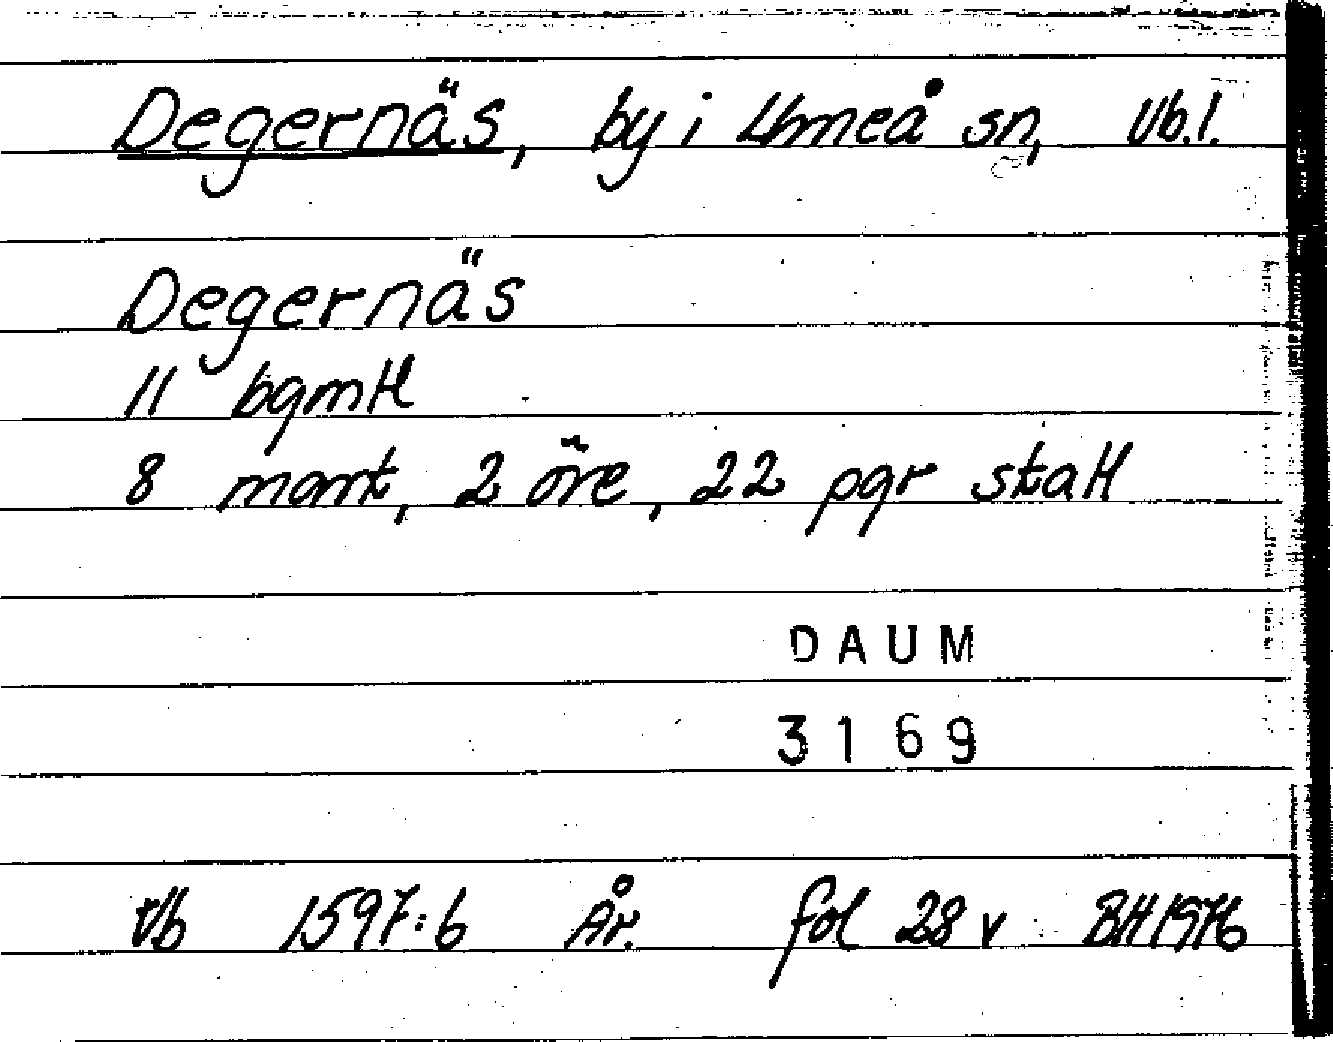 Degernäs, by i Umeå sn, Vb.l.
Degernäs
11 bgmtl
8 mark, 2 öre, 22 pgr skatt
DAUM
3169
Vb 1597:6 År. fol 28 v BH 1976